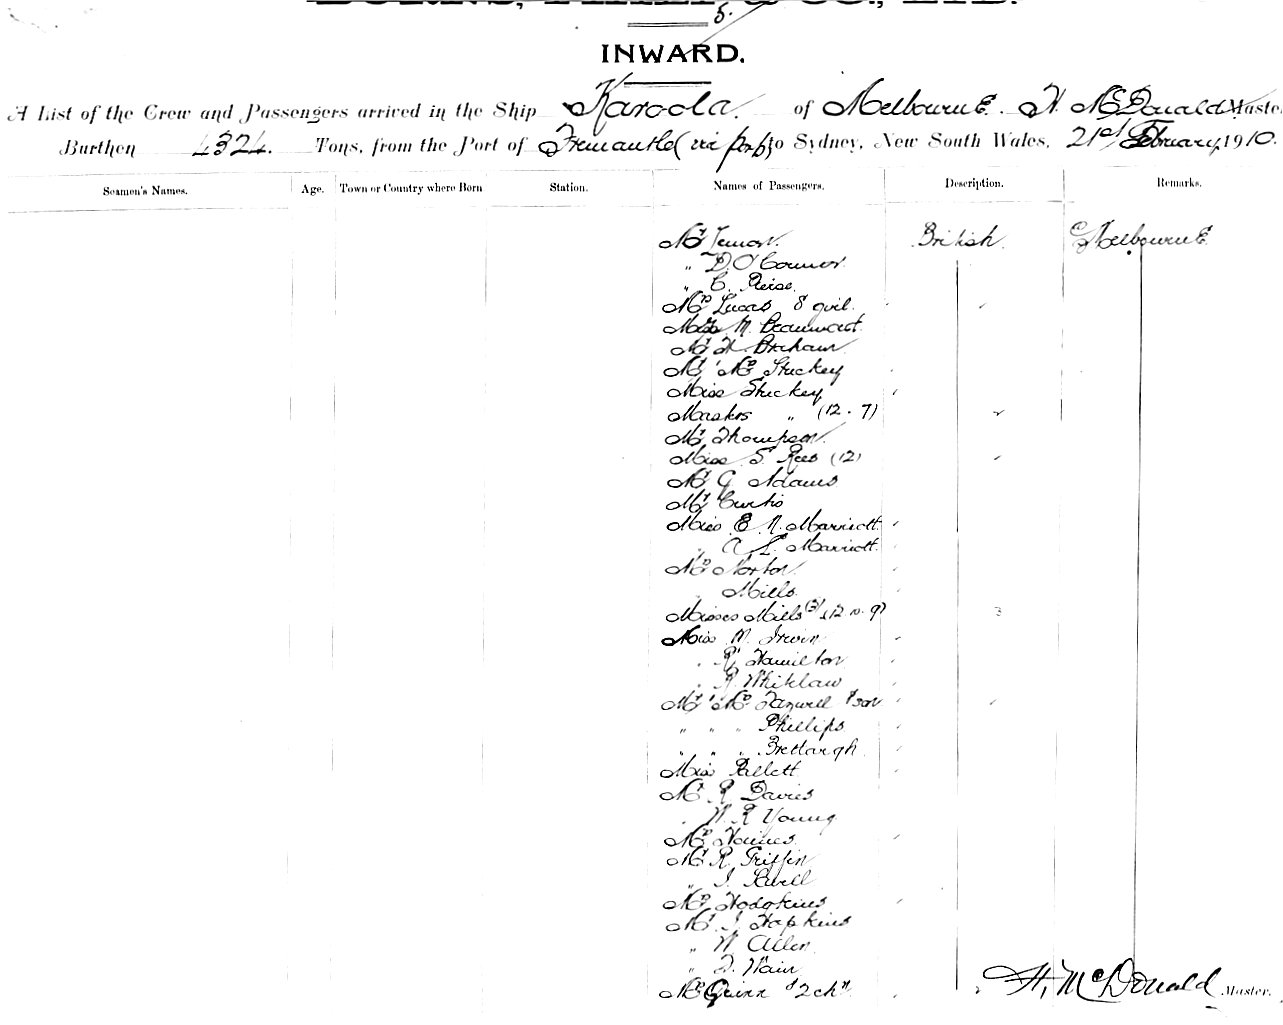 5.
INWARD.
A List of the Crew and Passengers arrived in the Ship Karoola of Melbourne. H. McDonald Master
Burthen 4324. Tons, from the Port of Fremantle (via ports) to Sydney, New South Wales, 21st February, 1910.
Seamen's Names. Age. Town or Country where Born Station. Names of Passengers. Description. Remarks.
Mr British Melbourne
" D. O'Connor
" C.
Mrs Lucas &
Miss M. Beaumont
Mr H.
Mr & Mrs Stuckey
Miss Stuckey
Masters " (12 . 7)
Mr Thompson
Miss S. Rees (12)
Mr G Adams
Mr Curtis
Miss E. N. Marriott
" A. L. Marriott
Mrs Norton
" Mills
Misses Mills (3) (12. 10. 9) 3
Miss M. Irwin
" R. Hamilton
" R. Whitelaw
Mr & Mrs & son
" " " Phillips
" " " Brettargh
Miss
Mr R Davies
" W. R Young
Mrs Haines
Mr R. Griffin
" J.
Mrs Hodgkins
Mr J. Hopkins
" W Allen
"
Mrs Quinn & 2 chn
H. McDonald Master.